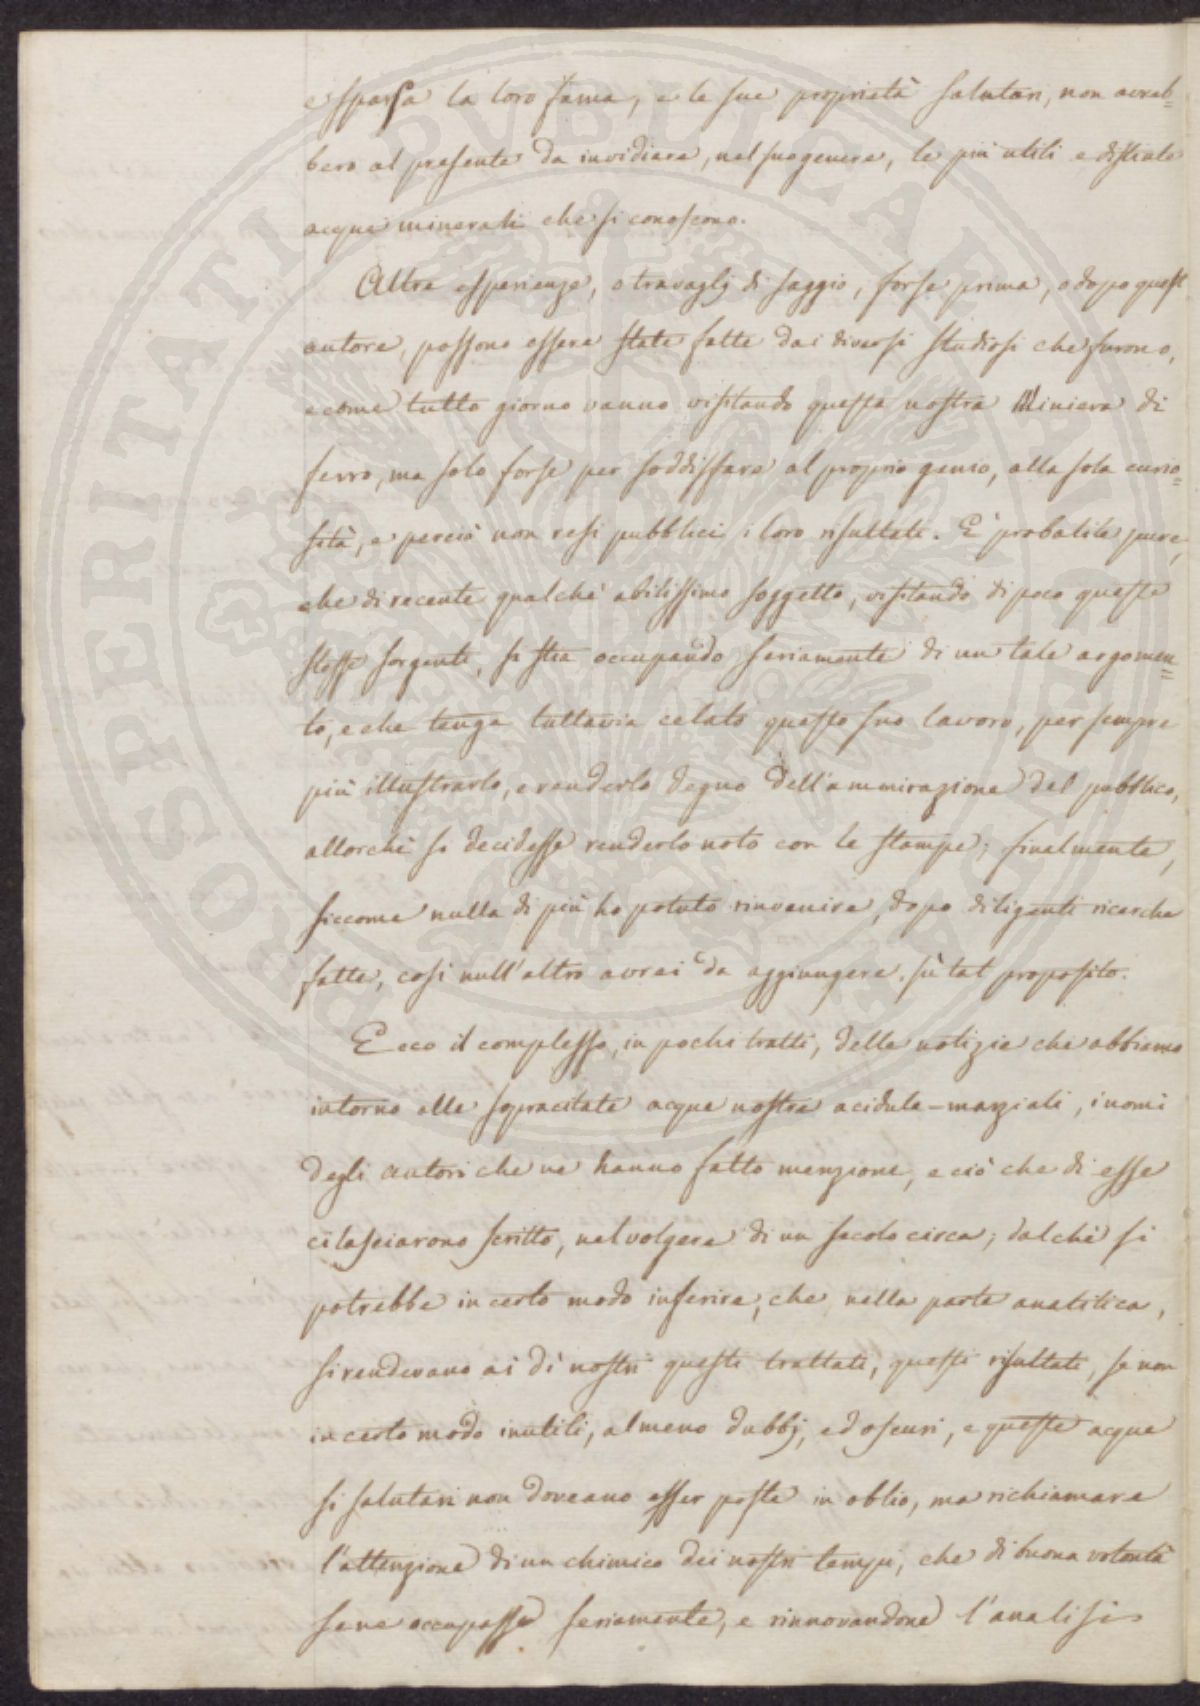 e sparsa la loro fama, e le sue proprietà salutari, non avreb=
bero al presente da invidiare, nel suo genere, le più utili e distinte
acque minerali che si conoscono.
Altre esperienze, o travaglj di saggio, forse prima, o dopo quest
autore, possono essere state fatte dai diversi studiosi che furono,
e come tutto giorno vanno visitando questa nostra Miniera di
ferro, ma solo forse per soddisfare al proprio genio, alla sola curio=
sità, e perciò non resi pubblici i loro risultati. E' probabile pure,
che di recente qualche abilissimo soggetto, visitando di poco queste
stesse sorgenti, si stia occupando seriamente di un tale argomen=
to, e che tenga tuttavia celato questo suo lavoro, per sempre
più illustrarlo, e renderlo degno dell'ammirazione del pubblico,
allorchè si decidesse renderlo noto con le stampe; finalmente,
siccome nulla di più ho potuto rinvenire, dopo diligenti ricerche
fatte, così null'altro avrei da aggiungere sù tal proposito.
Ecco il complesso, in pochi tratti, delle notizie che abbiamo
intorno alle sopracitate acque nostre acidule-marziali, i nomi
degli autori che ne hanno fatto menzione, e ciò che di esse
ci lasciarono scritto, nel volgere di un secolo circa; dal chè si
potrebbe in certo modo inferire, che nella parte analitica,
si rendevano ai dì nostri questi trattati, questi risultati, se non
in certo modo inutili, almeno dubbj, ed oscuri, e queste acque
sì salutari non doveano esser poste in oblio, ma richiamare
l'attenzione di un chimico dei nostri tempi, che di buona volontà
se ne occupasse seriamente, e rinnovandone l'analisi
PROSPERITATI PUBLICAE AUGENDAE